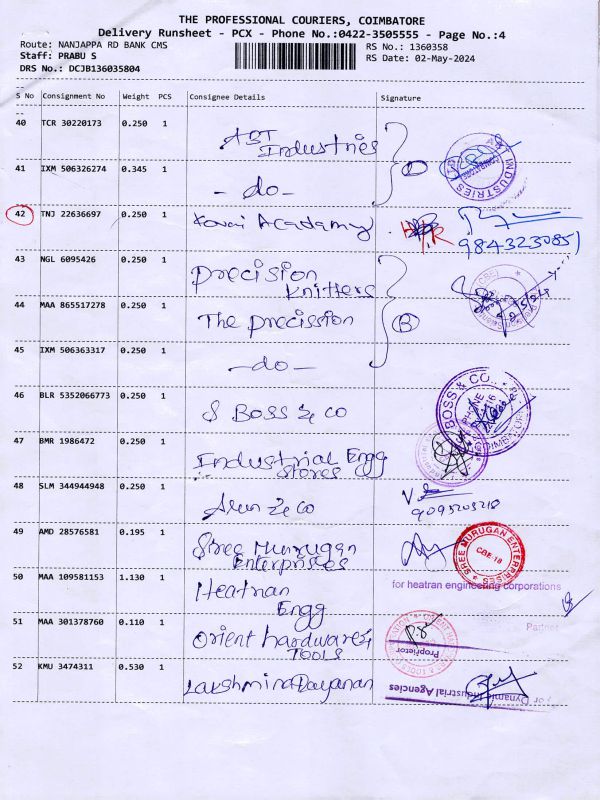 THE PROFESSIONAL COURIERS, COIMBATORE
Delivery Runsheet - PCX - Phone No.:0422-3505555 - Page No.:4
Route: NANJAPPA RD BANK CMS RS No.: 1360358
Staff: PRABU S RS Date: 02-May-2024
DRS No.: DCJB136035804
S No Consignment No Weight PCS Consignee Details Signature
40 TCR 30220173 0.250 1 ABT Industries
41 IXM 506326274 0.345 1 -do-
ABT INDUSTRIES LTD
42 TNJ 22636697 0.250 1 Kovai Acadamy HR
9843230851
43 NGL 6095426 0.250 1 Precision Knitters
44 MAA 865517278 0.250 1 The Precission B
45 IXM 506363317 0.250 1 -do-
46 BLR 5352066773 0.250 1 S Boss & co
BOSS & CO. PHONE COIMBATORE
47 BMR 1986472 0.250 1 Industrial Engg Stores
48 SLM 344944948 0.250 1 Arun & co
49 AMD 28576581 0.195 1 Sree Murugan Enterprises
SREE MURUGAN ENTERPRISES CBE-18
50 MAA 109581153 1.130 1 Heatran Engg
for heatran engineering corporations
Partner
51 MAA 301378760 0.110 1 Orient hardware & TOOLS
Proprietor
52 KMU 3474311 0.530 1 Lakshminarayanan
For Dynamic Industrial Agencies